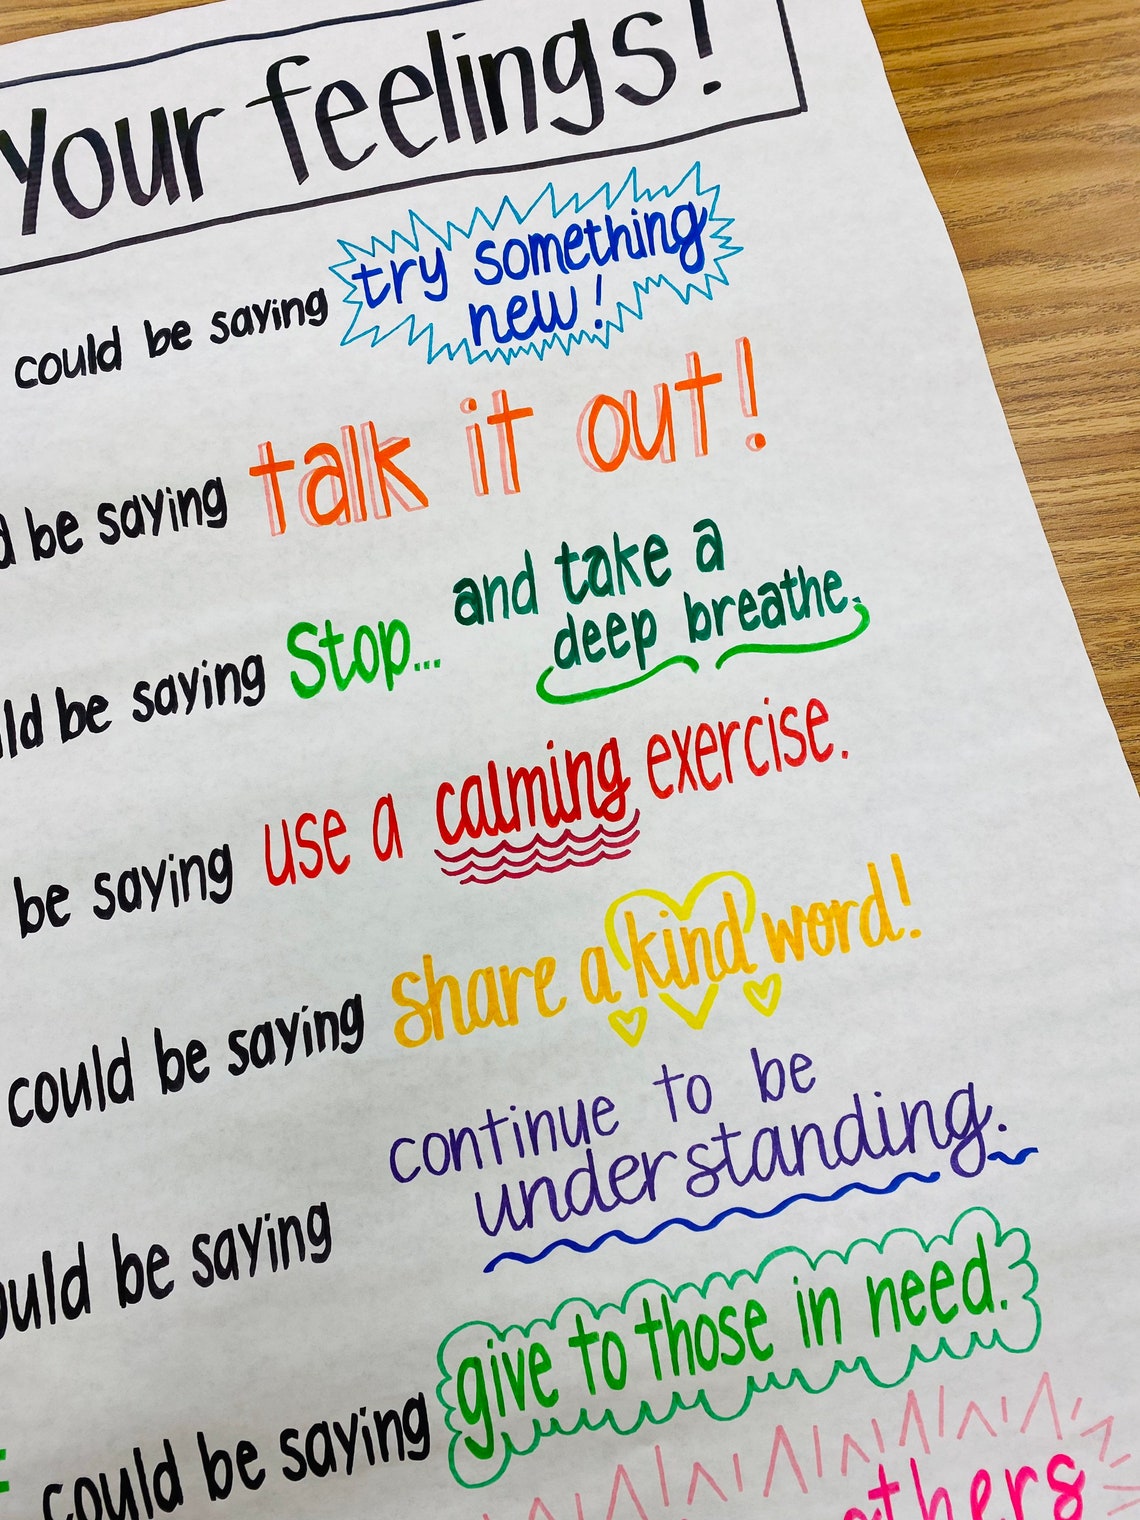 Your feelings!
could be saying try something
new!
be saying talk it out!
be saying Stop... and take a
deep breathe.
be saying use a calming exercise.
could be saying share a kind word!
continue to be
be saying understanding.
could be saying give to those in need.
others